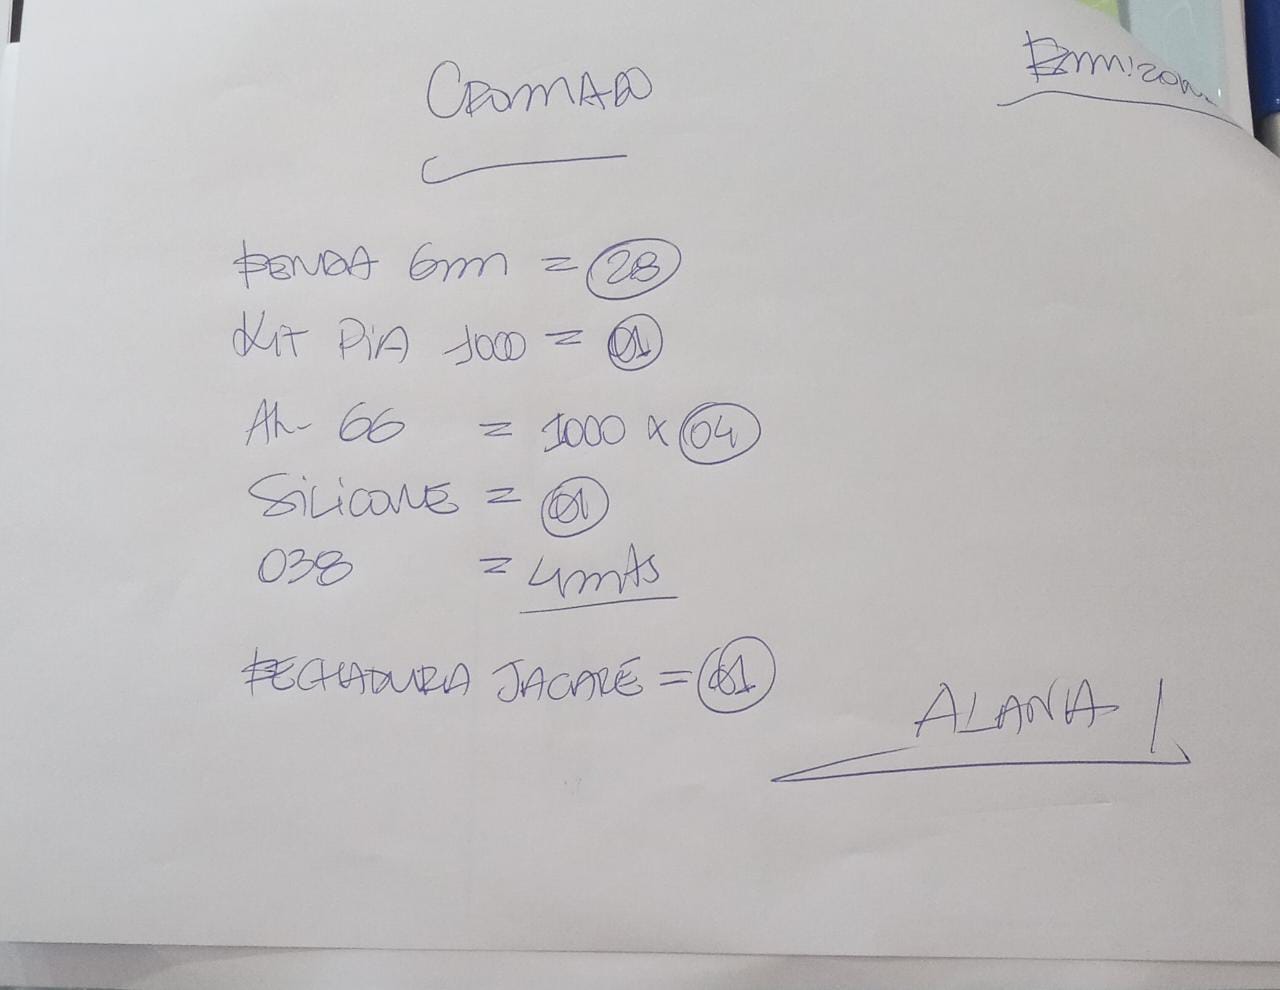 CROMADO
FENDA 6mm = 28
KIT PiA 1000 = 01
AL 66 = 1000 x 04
SiLiCONE = 01
038 = 4mts
FECHADURA JACARÉ = 01
ALANA